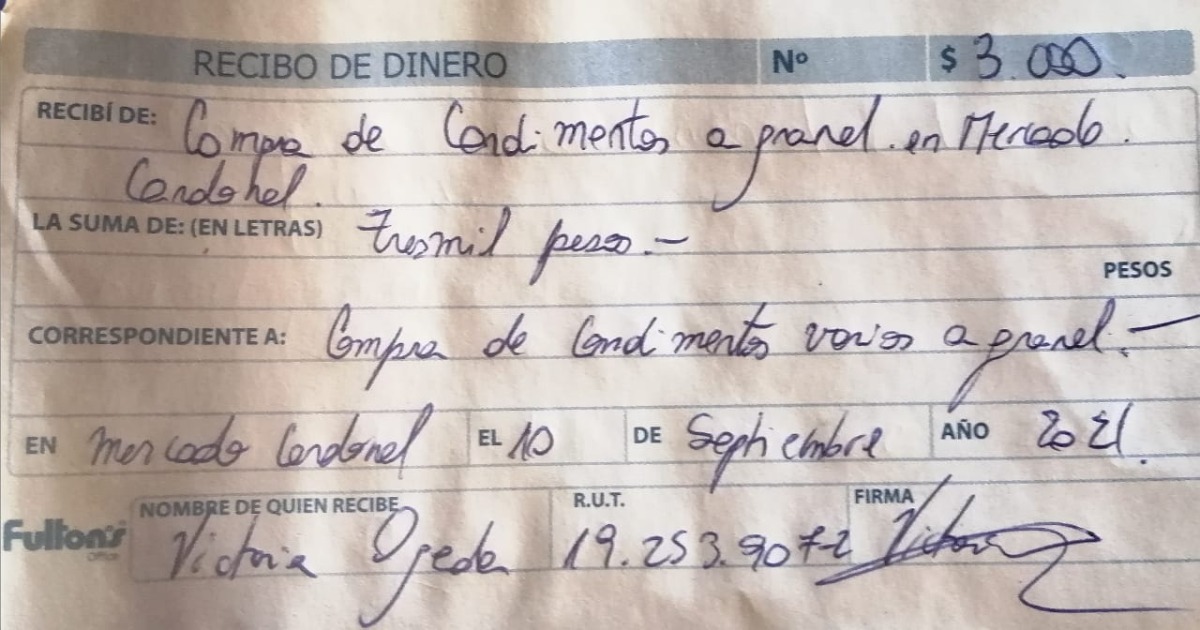 RECIBO DE DINERO Nº $ 3.000.
RECIBÍ DE: Compra de Condimentos a granel en Mercado
Cardonal.
LA SUMA DE: (EN LETRAS) tresmil pesos.-
PESOS
CORRESPONDIENTE A: Compra de Condimentos varios a granel.-
EN Mercado Cardonal EL 10 DE Septiembre AÑO 2021.
NOMBRE DE QUIEN RECIBE R.U.T. FIRMA
Fulton's Victoria Ojeda 19.253.907-2 Victoria
Office